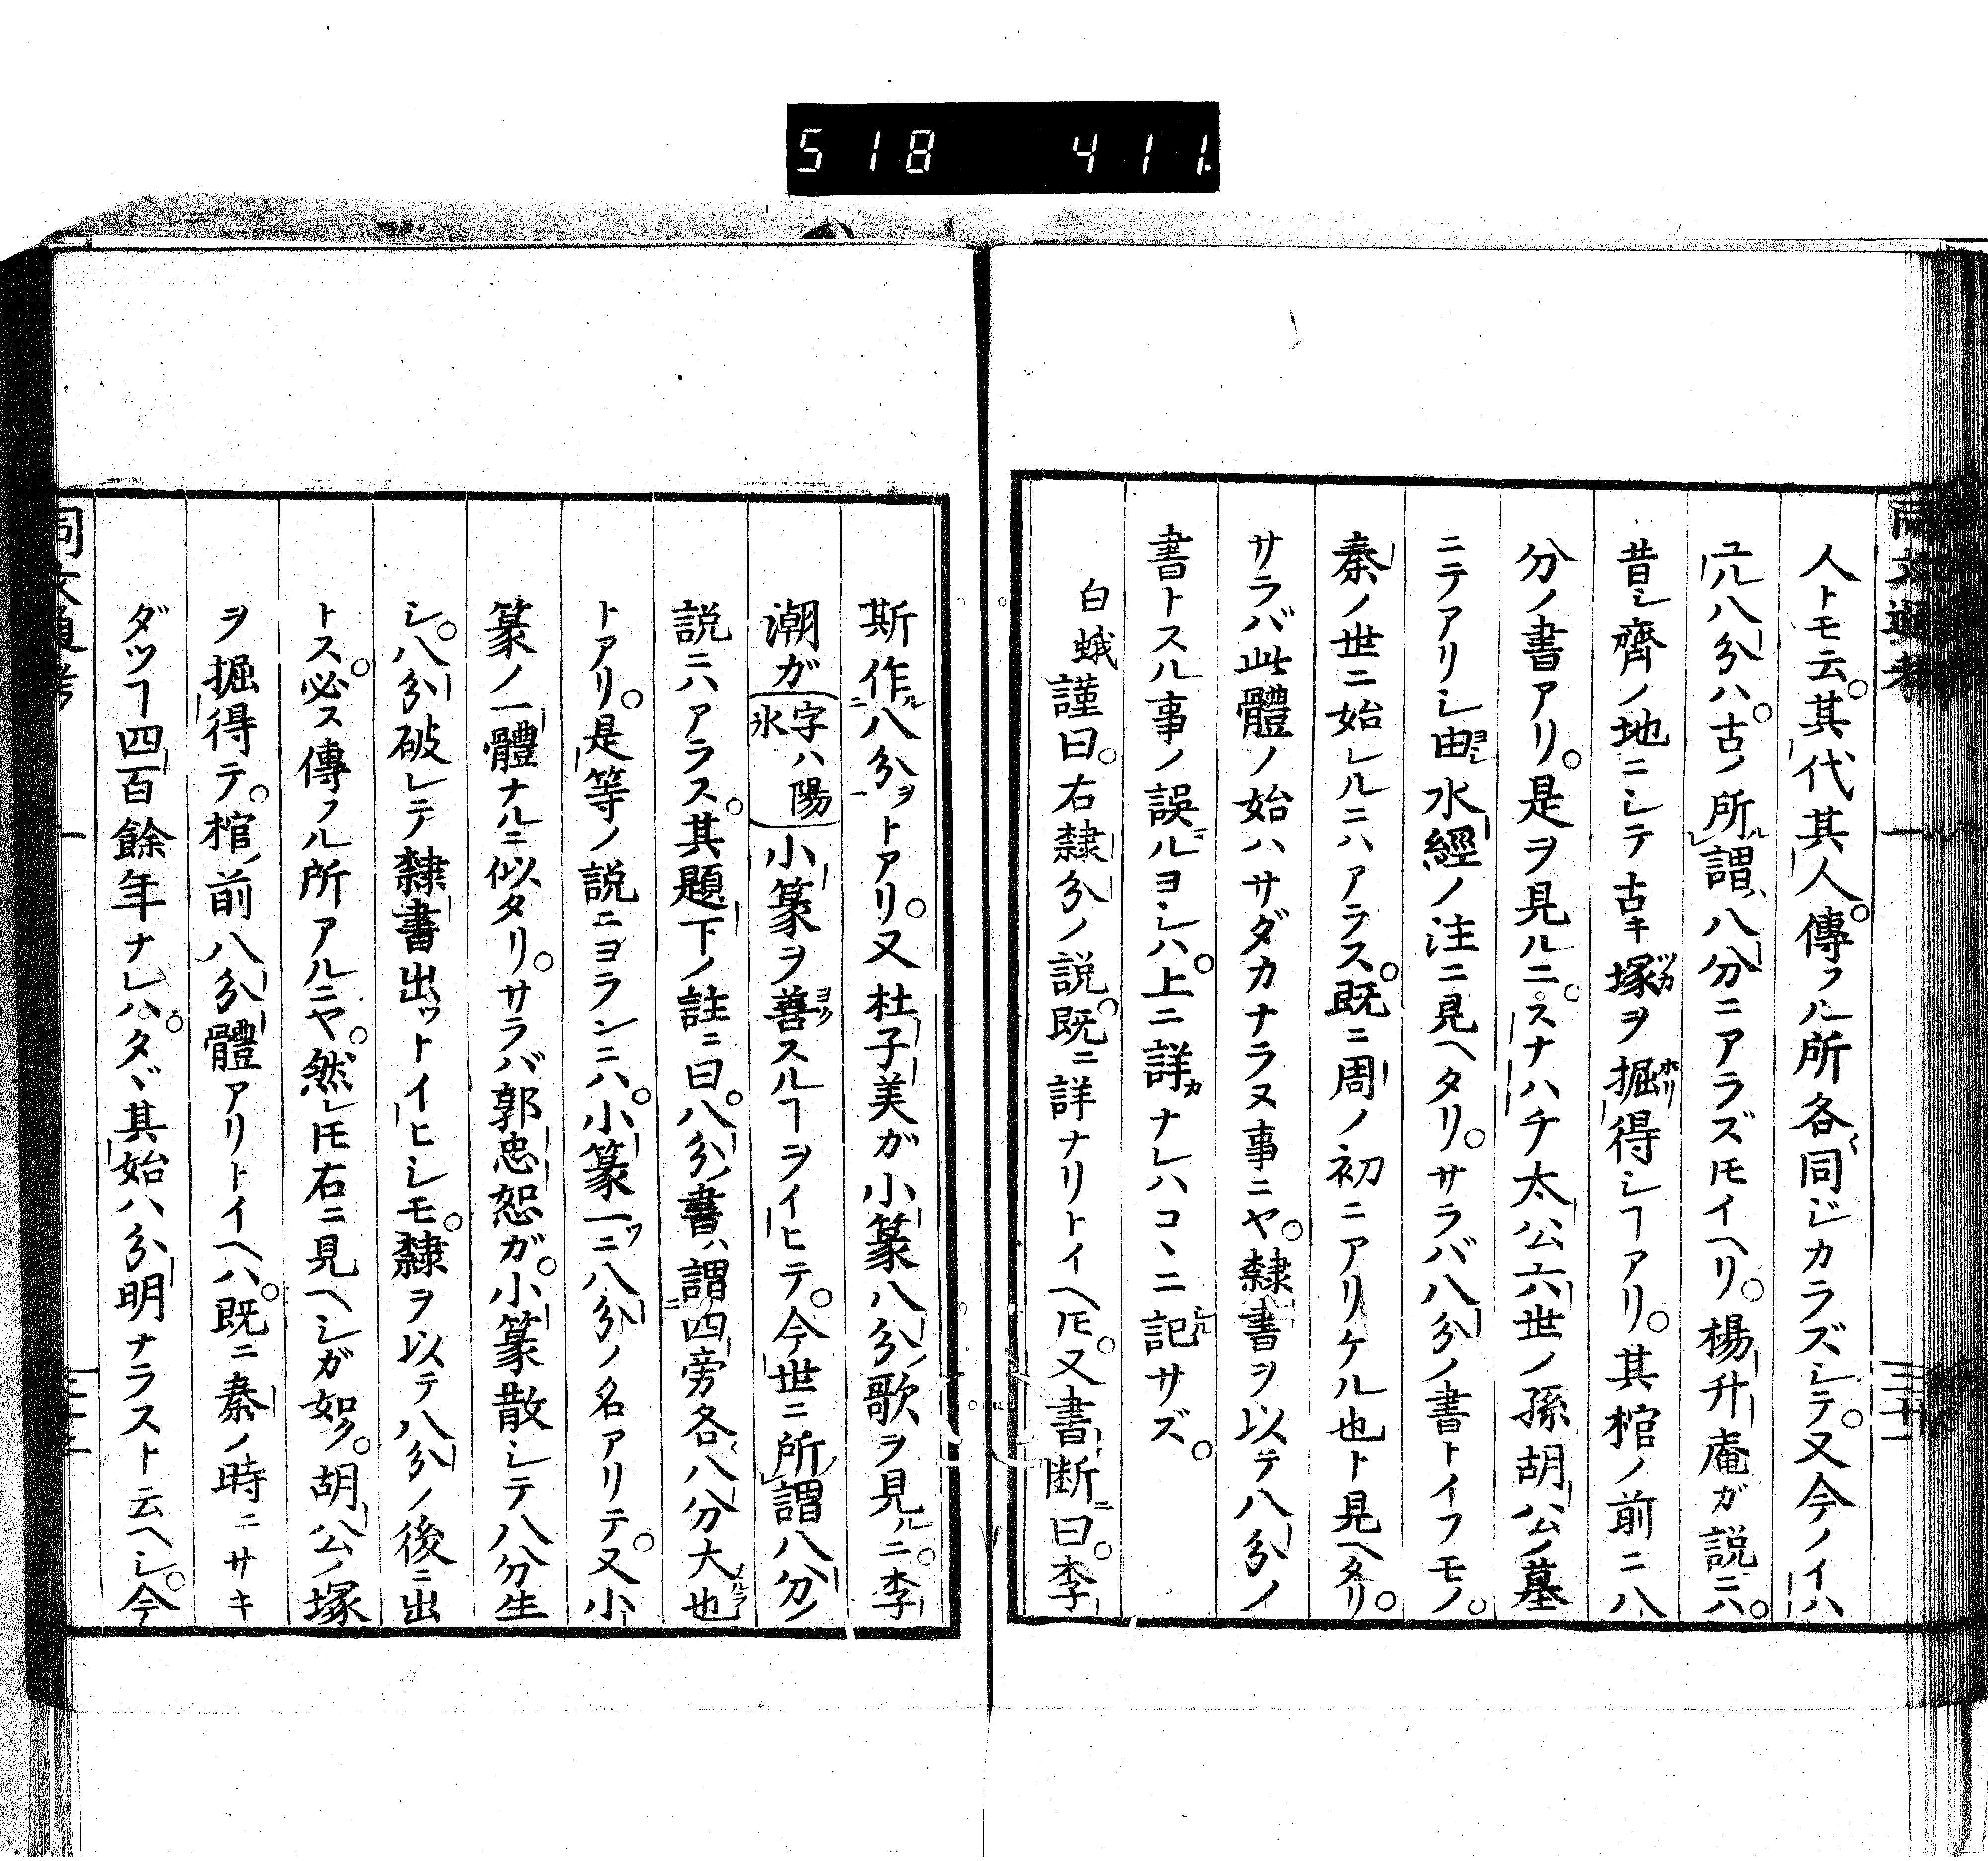 518 411
人トモ云。其代其人。傳フル所各同ジカラズシテ。又今ノイハ
ユル八分ハ。古ノ所謂八分ニアラズ𪜈イヘリ。楊升庵ガ説ニハ。
昔シ齊ノ地ニシテ古キ塚ヲ掘得シヿアリ。其棺ノ前ニ八
分ノ書アリ。是ヲ見ルニ。スナハチ太公六世ノ孫胡公ノ墓
ニテアリシ由水經ノ注ニ見ヘタリ。サラバ八分ノ書トイフモノ。
秦ノ世ニ始レルニハアラス。既ニ周ノ初ニアリケル也ト見ヘタリ。
サラバ此體ノ始ハサダカナラヌ事ニヤ。隸書ヲ以テ八分ノ
書トスル事ノ誤ルヨシハ。上ニ詳カナレハコヽニ記サズ。
白蛾謹曰。右隸分ノ説。既ニ詳ナリトイヘ𪜈。又書断ニ曰。李
斯作ル八分ヲトアリ。又杜子美ガ小篆八分ノ歌ヲ見ルニ。李
潮ガ(字ハ陽氷)小篆ヲ善スルヿヲイヒテ。今世ニ所謂八分ノ
説ニハアラス。其題下ノ註ニ曰。八分ノ書ハ謂四旁各八分大也
トアリ。是等ノ説ニヨランニハ。小篆一ツニ八分ノ名アリテ。又小
篆ノ一體ナルニ似タリ。サラバ郭忠恕ガ。小篆散シテ八分生
シ。八分破レテ隸書出ツトイヒシモ。隸ヲ以テ八分ノ後ニ出
トス。必ス傳フル所アルニヤ。然レ𪜈右ニ見ヘシガ如ク。胡公ノ塚
ヲ掘得テ。棺ノ前八分體アリトイヘハ。既ニ秦ノ時ニサキ
ダツヿ四百餘年ナレハ。タヾ其始ハ分明ナラスト云ヘシ。今